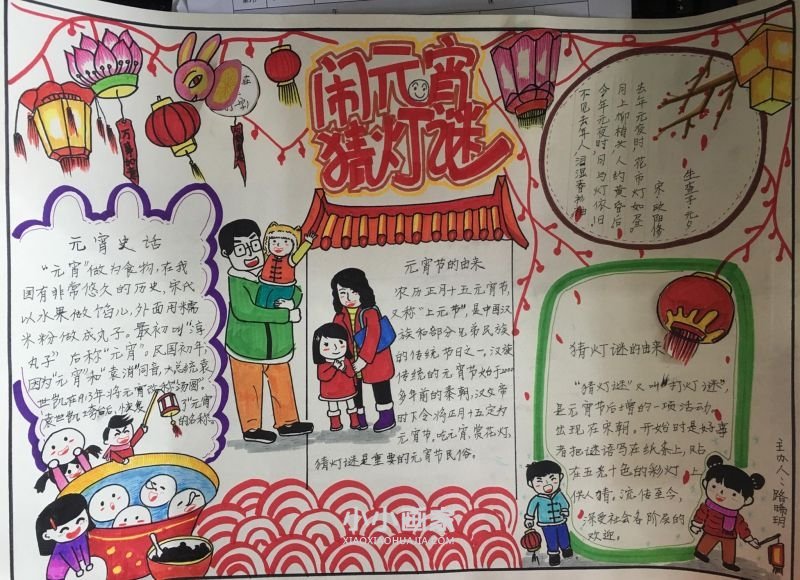 闹元宵
猜灯谜
元宵史话
"元宵"做为食物,在我
国有非常悠久的历史,宋代
以水果做馅儿,外面用糯
米粉做成丸子。最初叫"浮
丸子"后称"元宵"。民国初年,
因为"元宵"和"袁消"同音,大总统袁
世凯在1913年将元宵改称"汤圆"。
袁世凯垮台后,恢复了"元宵"
的名称。
元宵节的由来
农历正月十五元宵节,
又称"上元节",是中国汉
族和部分兄弟民族
的传统节日之一,汉族
传统的元宵节始于2000
多年前的秦朝,汉文帝
时下令将正月十五定为
元宵节,吃元宵,赏花灯,
猜灯谜是重要的元宵节民俗。
生查子·元夕
宋 欧阳修
去年元夜时,花市灯如昼。
月上柳梢头,人约黄昏后。
今年元夜时,月与灯依旧。
不见去年人,泪湿春衫袖
猜灯谜的由来
"猜灯谜"又叫"打灯谜",
是元宵节后增的一项活动,
出现在宋朝。开始时是好事
者把谜语写在纸条上,贴
在五光十色的彩灯上
供人猜,流传至今,
深受社会各阶层的
欢迎。
主办人:路瑞玥
小小画家
XIAOXIAOHUAJIA.COM